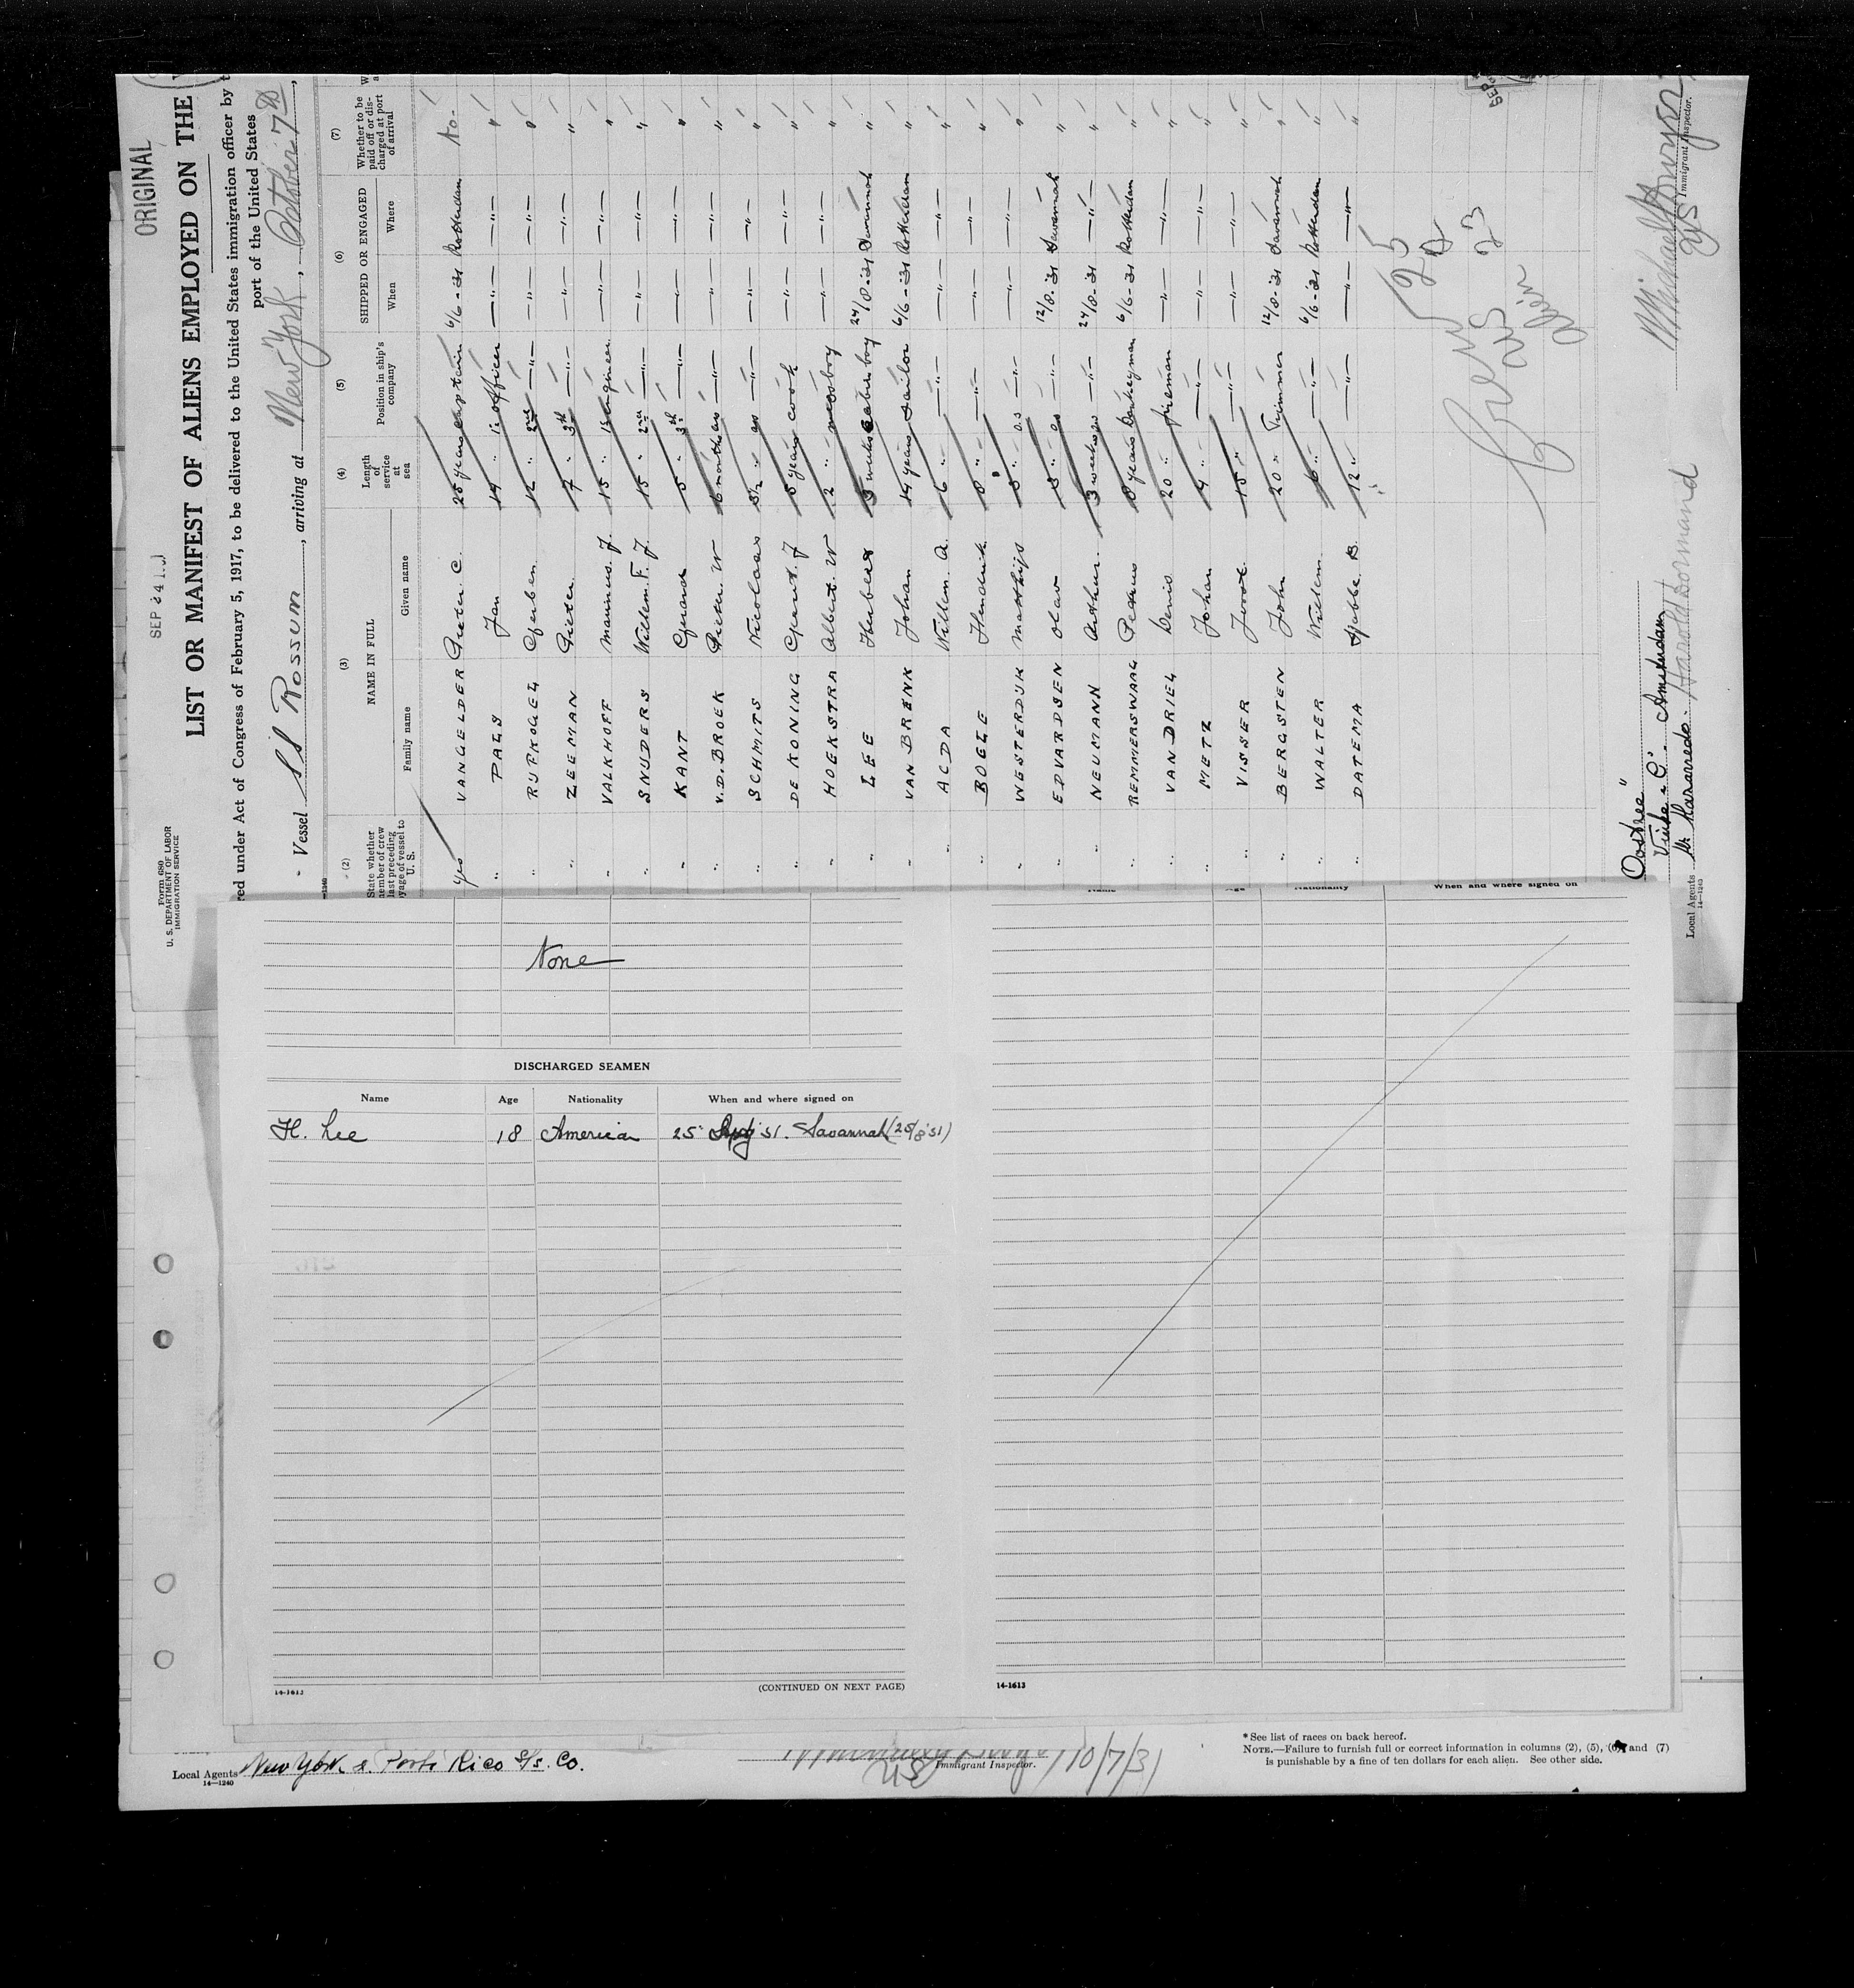 ORIGINAL
Form 680
U. S. DEPARTMENT OF LABOR
IMMIGRATION SERVICE
LIST OR MANIFEST OF ALIENS EMPLOYED ON THE
red under Act of Congress of February 5, 1917, to be delivered to the United States immigration officer by
port of the United States
Vessel SS Rossum, arriving at New York, October 7th
(2) (3) (4) (5) (6) (7)
State whether member of crew last preceding voyage of vessel to U. S.
NAME IN FULL
Family name Given name
Length of service at sea
Position in ship's company
SHIPPED OR ENGAGED
When Where
Whether to be paid off or discharged at port of arrival
yes VAN GELDER Pieter. C. 25 years captain 6/6-31 Rotterdam No-
" PALS Jan 19 " 1e officer —"— —"— "
" RIJFKOGEL Gerben 12 " 2nd —"— —"— —"— "
" ZEEMAN Pieter 7 " 3d —"— —"— —"— "
" VALKHOFF Marinus. J. 15 " 1e Engineer —"— —"— "
" SNIJDERS Willem. F. J. 15 " 2nd —"— —"— —"— "
" KANT Gerard 5 " 3th —"— —"— —"— "
" v.d. BROEK Pieter. W 6 months as —"— —"— —"— "
" SCHMITS Nicolaas as —"— —"— —"— "
" DE KONING Gerrit. J 5 years cook —"— —"— "
" HOEKSTRA Albert. W 2 " messboy —"— —"— "
" LEE Herbert 3 weeks cabin boy 24/8-31 Savannah "
" VAN BRINK Johan 14 years Sailor 6/6-31 Rotterdam "
" ACDA Willem. A. 6 " —"— —"— —"— "
" BOELE Hendrik 8 " —"— —"— —"— "
" WESTERDIJK Matthijs 5 " o.s —"— —"— —"— "
" EDVARDSEN Olav 3 " o.s —"— 12/8-31 Savannah "
" NEUMANN Arthur. 3 weeks o.s —"— 24/8-31 —"— "
" REMMERSWAAL Petrus 8 years Donkeyman 6/6-31 Rotterdam "
" VAN DRIEL Denis 20 " fireman —"— —"— "
" METZ Johan 4 " —"— —"— —"— "
" VISSER Joost 15 " —"— —"— —"— "
" BERGSTEN John 20 " Trimmer 12/8-31 Savannah "
" WALTER Willem 6 " —"— 6/6-31 Rotterdam "
" DATEMA Sjabbe. B. 12 " —"— —"— —"— "
Crew 25
2 US
23 Alien
"Oostzee"
Vinke & Co. Amsterdam
Local Agents
14—1240
Immigrant Inspector.
None
DISCHARGED SEAMEN
Name Age Nationality When and where signed on
H. Lee 18 American 25" '31. Savannah (25/8'31)
14-1613 (CONTINUED ON NEXT PAGE)
Name Age Nationality When and where signed on
14-1613
Local Agents New York & Porto Rico S/s. Co.
14—1240
US Immigrant Inspector. 10/7/31
* See list of races on back hereof.
NOTE.—Failure to furnish full or correct information in columns (2), (5), (6), and (7)
is punishable by a fine of ten dollars for each alien. See other side.